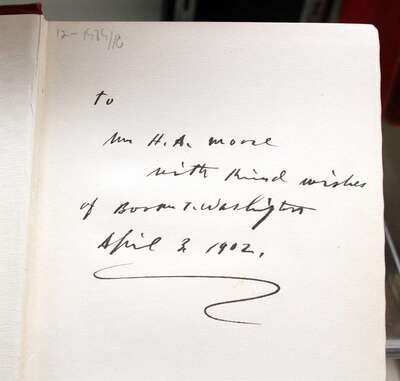 to
Mr H. A. Moore
with kind wishes
of Booker T. Washington
April 2 1902.